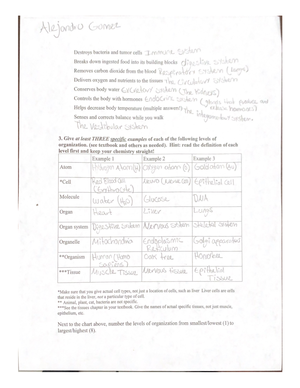 Alejandra Gomez
Destroys bacteria and tumor cells Immune System
Breaks down ingested food into its building blocks Digestive System
Removes carbon dioxide from the blood Respiratory System (lungs)
Delivers oxygen and nutrients to the tissues The Circulatory System
Conserves body water Excretory System (The Kidneys)
Controls the body with hormones Endocrine System (glands that produce and release hormones)
Helps decrease body temperature (multiple answers) The Integumentary System
Senses and corrects balance while you walk
The Vestibular System
3. Give at least THREE specific examples of each of the following levels of
organization. (see textbook and others as needed). Hint: read the definition of each
level first and keep your chemistry straight!
Example 1 Example 2 Example 3
Atom Hydrogen Atom (H) Oxygen atom (O) Carbon atom
*Cell Red Blood Cell (Erythrocyte) Neuron (Nerve cell) Epithelial cell
Molecule Water (H2O) Glucose DNA
Organ Heart Liver Lungs
Organ system Digestive System Nervous System Skeletal System
Organelle Mitochondria Endoplasmic Reticulum Golgi apparatus
**Organism Human (Homo sapiens) Oak tree
***Tissue Muscle Tissue Nervous Tissue Epithelial Tissue
*Make sure that you give actual cell types, not just a location of cells, such as liver. Liver cells are cells
that reside in the liver, not a particular type of cell
** Animal, plant, cat, bacteria are not specific
***See the tissues chapter in your textbook. Give the names of actual specific tissues, not just muscle,
epithelium, etc.
Next to the chart above, number the levels of organization from smallest/lowest (1) to
largest/highest (8).